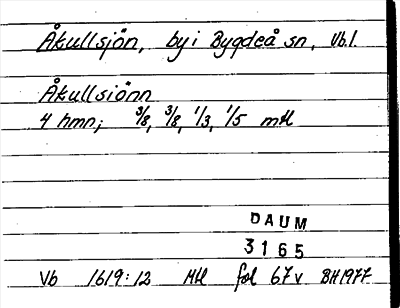 Åkullsjön, by i Bygdeå sn, Vb.l.
Åkullsiönn
4 hmn; 3/8, 3/8, 1/3, 1/5 mtl
DAUM
3165
Vb 1619:12 Mtl fol 67v BH 1977